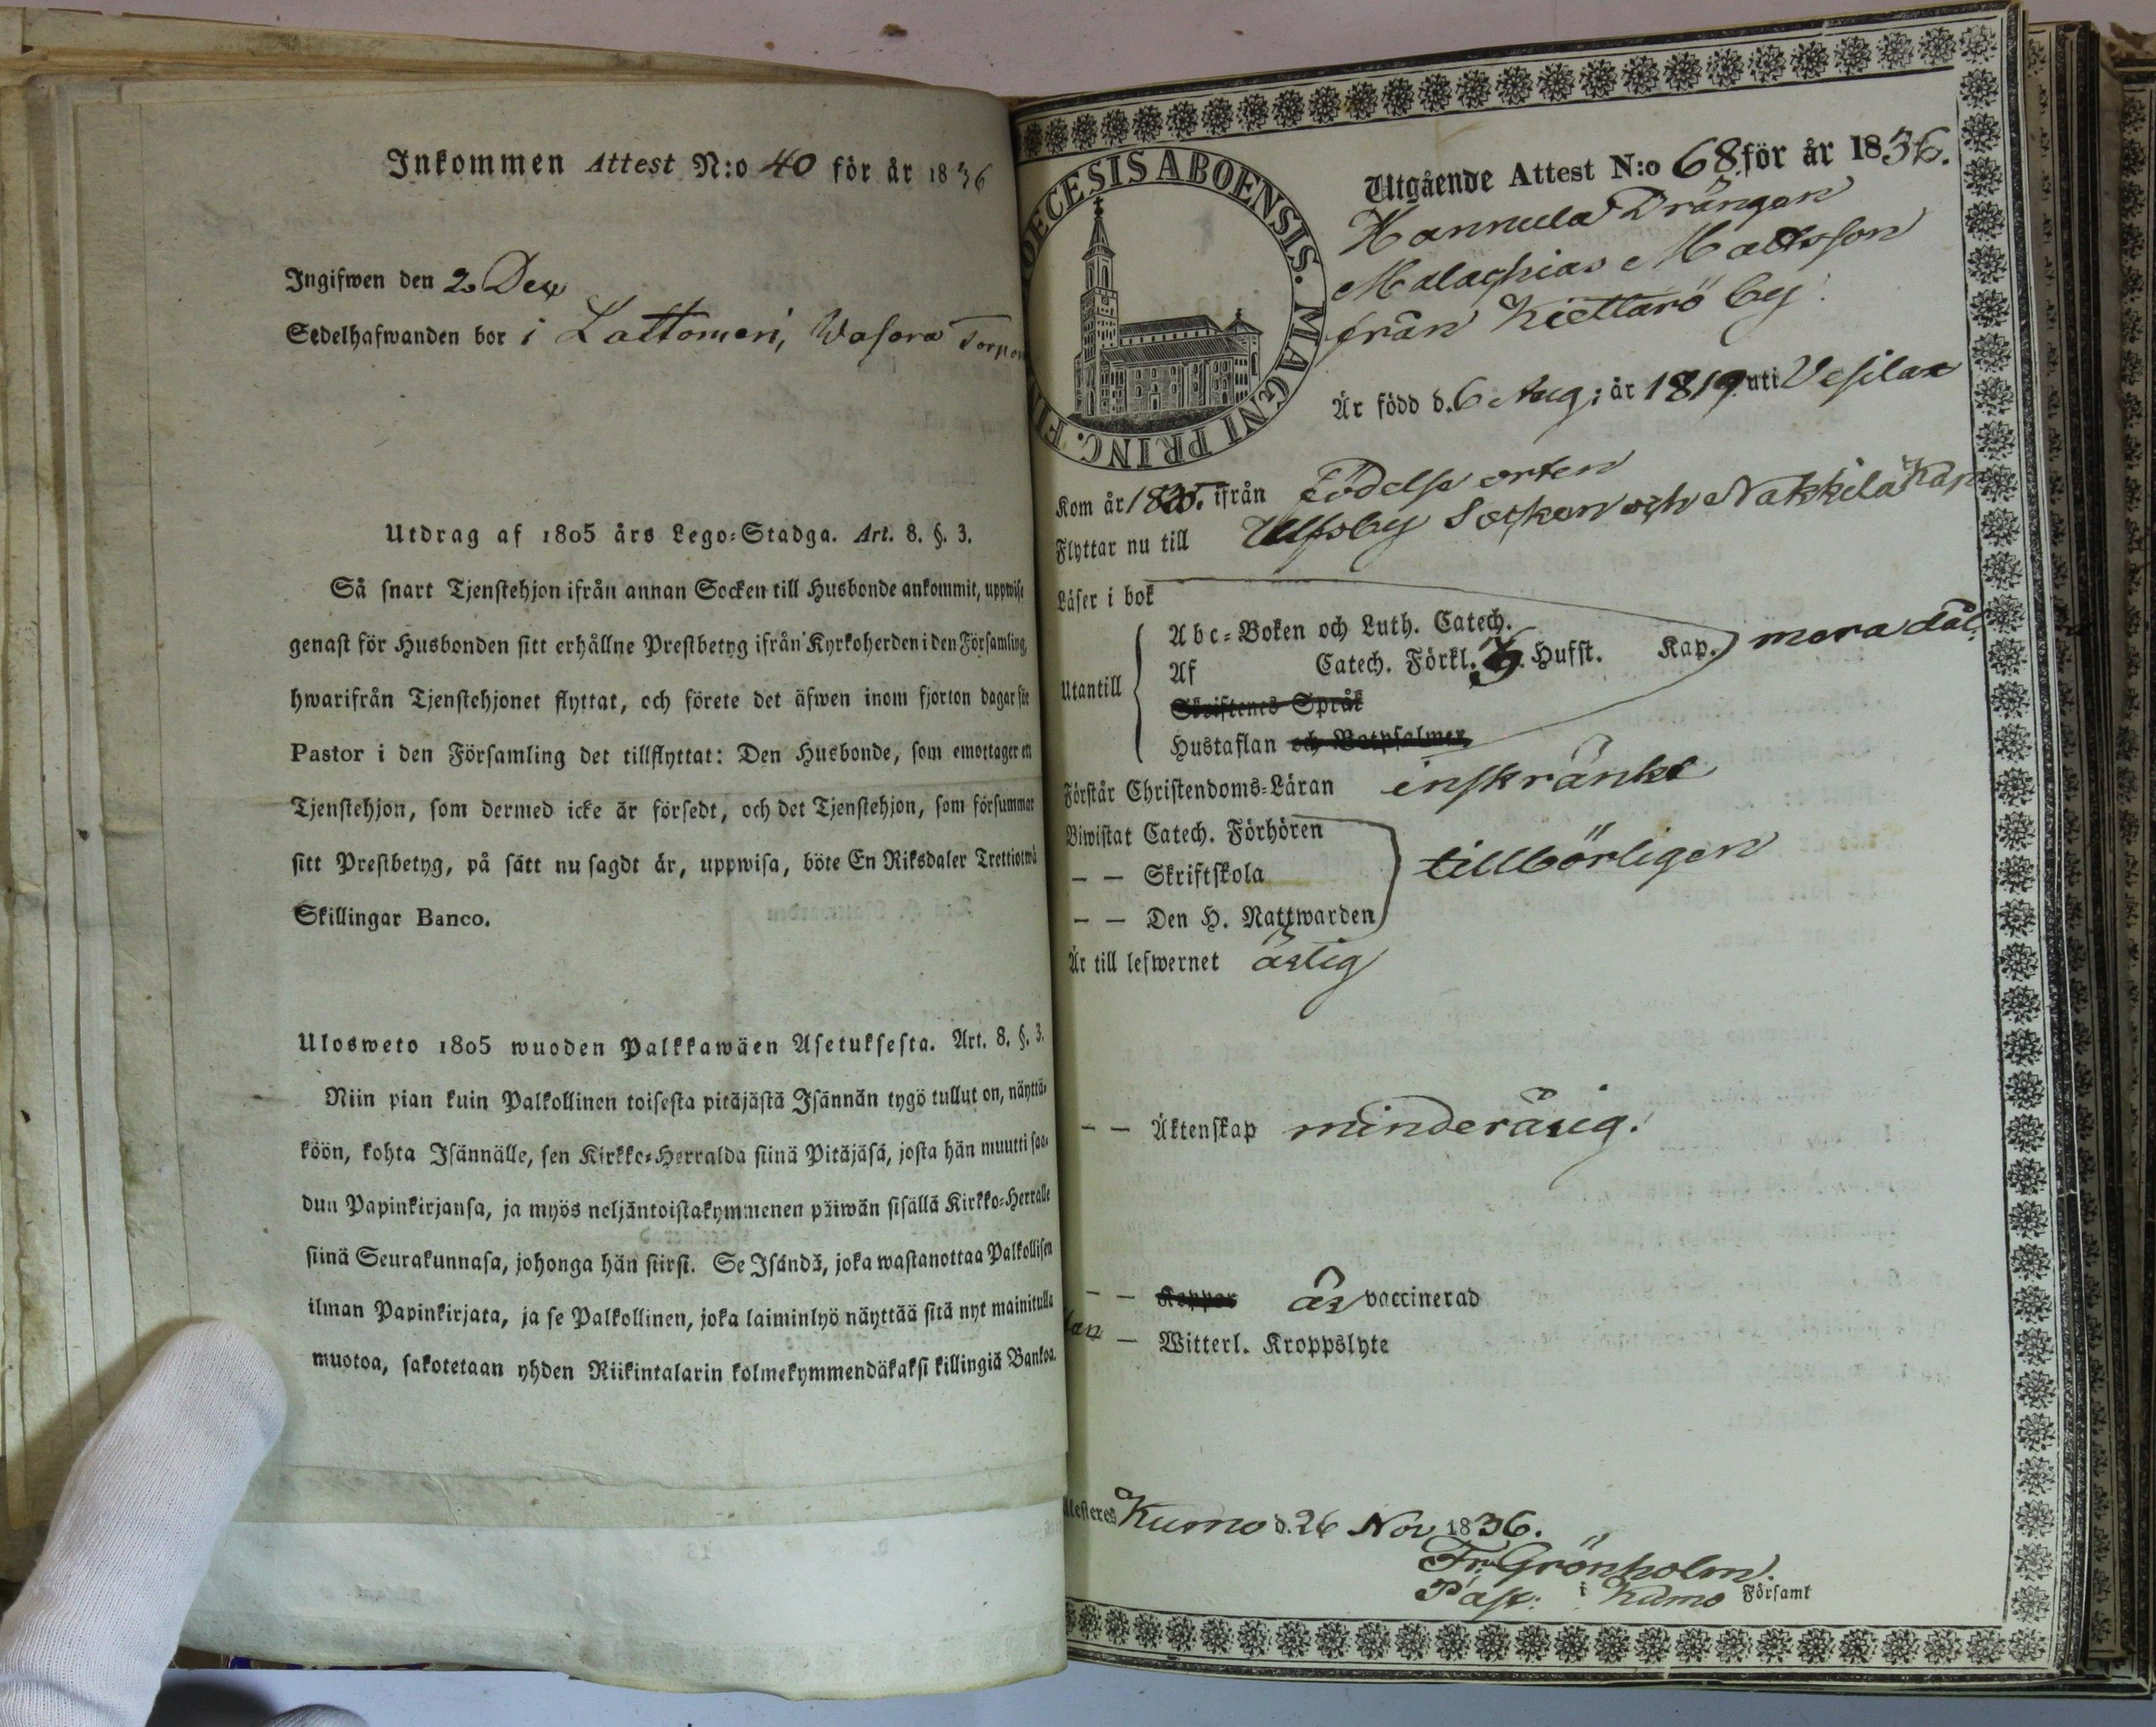 Inkommen Attest N:o 40 för år 1836
Ingifwen den 2 Dec
Sedelhafwanden bor i Lattomeri, Wasara Torpen
Utdrag af 1805 års Lego-Stadga. Art. 8. §. 3.
Så snart Tjenstehjon ifrån annan Socken till Husbonde ankommit, uppwise
genast för Husbonden sitt erhållne Prestbetyg ifrån Kyrkoherden i den Församling,
hwarifrån Tjenstehjonet flyttat, och förete det äfwen inom fjorton dagar för
Pastor i den Församling det tillflyttat: Den Husbonde, som emottager ett
Tjenstehjon, som dermed icke är försedt, och det Tjenstehjon, som försummar
sitt Prestbetyg, på sätt nu sagdt är, uppwisa, böte En Riksdaler Trettiotwå
Skillingar Banco.
Ulosweto 1805 wuoden Palkkawäen Asetuksesta. Art. 8. §. 3.
Niin pian kuin Palkollinen toisesta pitäjästä Isännän tygö tullut on, näyttä-
köön, kohta Isännälle, sen Kirkko-Herralda siinä Pitäjäsä, josta hän muutti saa-
dun Papinkirjansa, ja myös neljäntoistakymmenen päiwän sisällä Kirkko-Herralle
siinä Seurakunnasa, johonga hän siirsi. Se Isändä, joka wastanottaa Palkollisen
ilman Papinkirjata, ja se Palkollinen, joka laiminlyö näyttää sitä nyt mainitulla
muotoa, sakotetaan yhden Riikintalarin kolmekymmendäkaksi killingiä Bankoa.
DIOECESIS ABOENSIS. MAGNI PRINC. FIN
Utgående Attest N:o 68 för år 1836.
Hannula Drängen
Malachias Mattsson
från Kiettarö by.
Är född d. 6 Aug; år 1819 uti Vesilax
Kom år ifrån födelse orten
Flyttar nu till Ulfsby Socken och Nakkila Kap
Läser i bok
Abc-Boken och Luth. Catech.
Af Catech. Förkl. 3. Hufst. Kap. mera dål.
Utantill
Skriftenes Språk
Hustaflan och Botpsalmer
Förstår Christendoms-Läran inskränkt
Biwistat Catech. Förhören
— — Skriftskola tillbörligen
— — Den H. Nattwarden
Är till lefwernet ärlig
— — Äktenskap minderårig.
— — Koppor är vaccinerad
utan — Witterl. Kroppslyte
Attesteres Kumo d. 26 Nov 1836.
Fr. Grönholm.
Past: i Kumo Församl